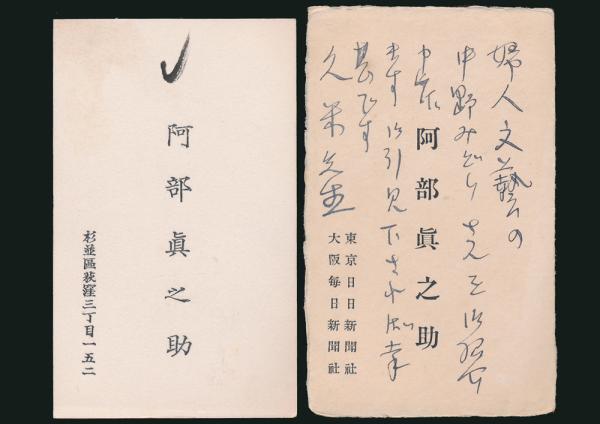 婦人文藝の
中野みどりさんを御紹介
申上
ます御引見下され
幸
甚です
久米先生
阿部眞之助
東京日日新聞社
大阪毎日新聞社
阿部眞之助
杉並區荻窪三丁目一五二